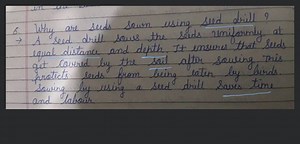 5. Why are seeds sown using seed drill?
→ A seed drill sows the seeds uniformly at
equal distance and depth. It ensures that seeds
get covered by the soil after sowing. This
protects seeds from being eaten by birds
Sowing by using a seed drill saves time
and labour.